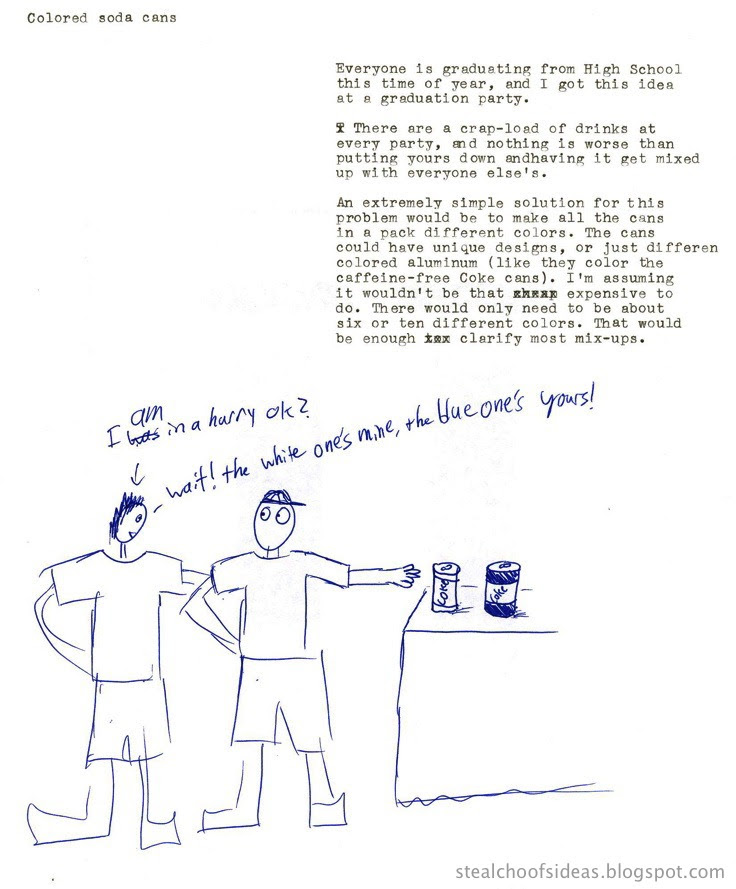 Colored soda cans
Everyone is graduating from High School
this time of year, and I got this idea
at a graduation party.
There are a crap-load of drinks at
every party, and nothing is worse than
putting yours down andhaving it get mixed
up with everyone else's.
An extremely simple solution for this
problem would be to make all the cans
in a pack different colors. The cans
could have unique designs, or just differen
colored aluminum (like they color the
caffeine-free Coke cans). I'm assuming
it wouldn't be that expensive to
do. There would only need to be about
six or ten different colors. That would
be enough clarify most mix-ups.
am
I was in a hurry ok?
wait! the white one's mine, the blue one's yours!
Coke
Coke
stealchoofsideas.blogspot.com